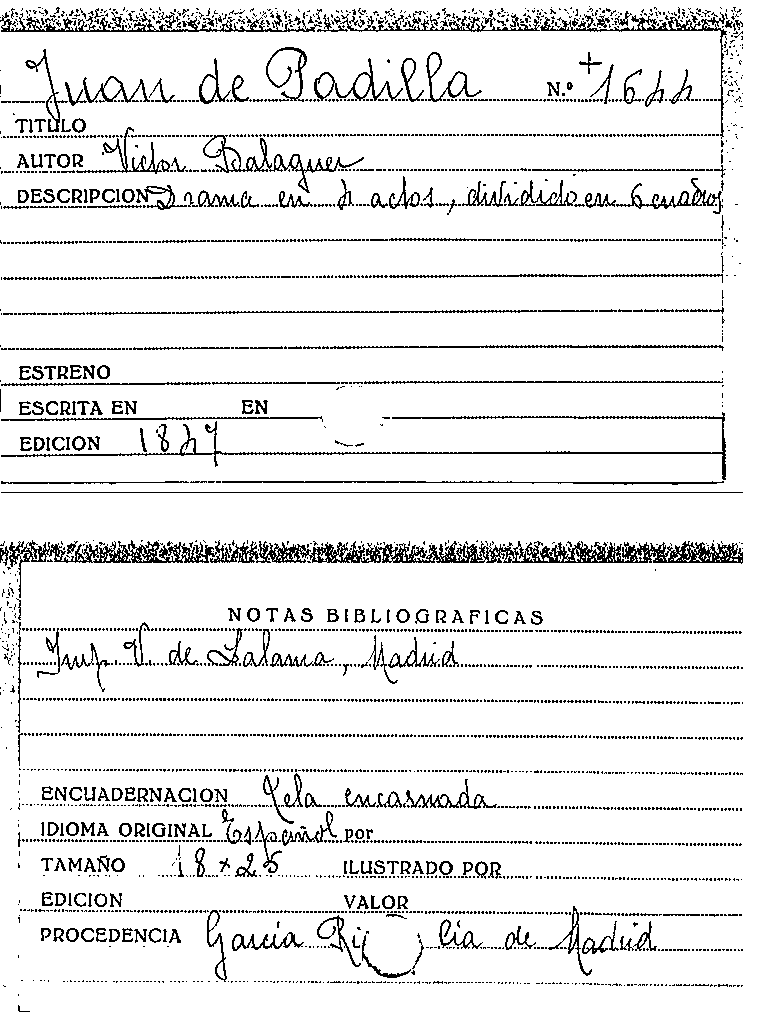 Juan de Padilla N.º +1644
TITULO
AUTOR Victor Balaguer
DESCRIPCION Drama en 4 actos, dividido en 6 cuadros
ESTRENO
ESCRITA EN EN
EDICION 1847
NOTAS BIBLIOGRAFICAS
Imp. V. de Lalama, Madrid
ENCUADERNACION Tela encarnada
IDIOMA ORIGINAL Español por
TAMAÑO 18 x 25 ILUSTRADO POR
EDICION VALOR
PROCEDENCIA García Ri cia de Madrid